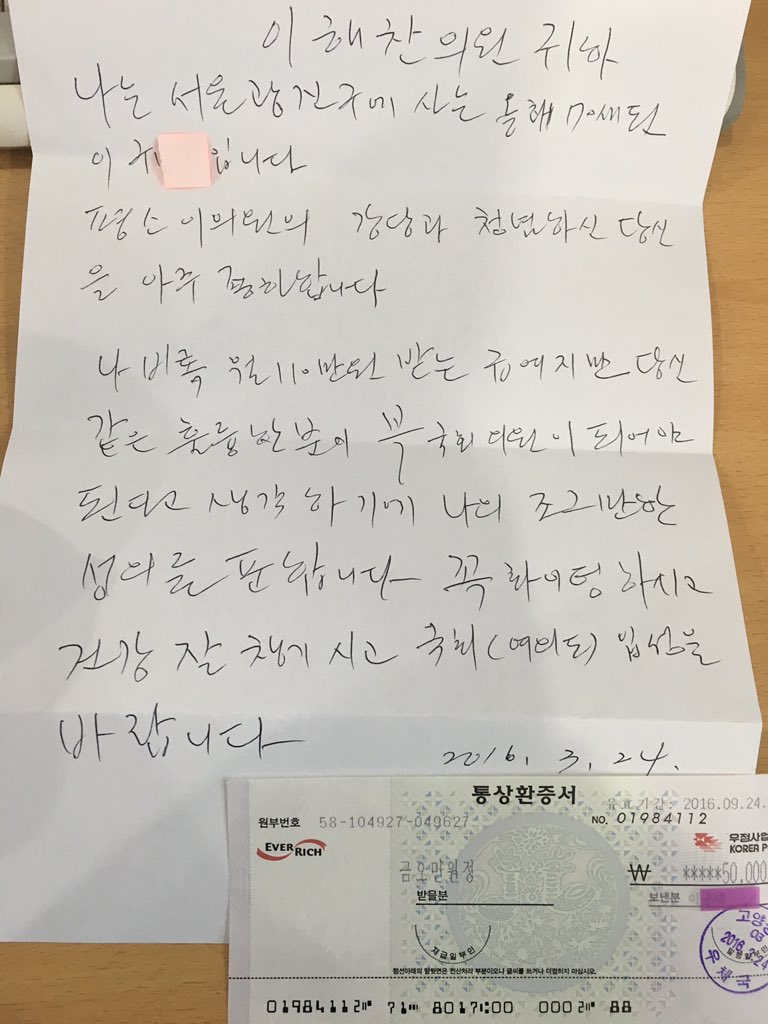 이해찬의원 귀하
나는 서울 광진구에 사는 올해 70세된
이 입니다
평소 이의원의 강당과 청년하신 당신
을 아주 좋아합니다
나 비록 월 110만원 받는 급여지만 당신
같은 훌륭한 분이 부 국회의원이 되어야
된다고 생각하기에 나의 조그만한
성의를 표합니다 꼭 화이팅 하시고
건강 잘 챙기시고 국회(여의도) 입성을
바랍니다
2016. 3. 24.
통상환증서
유효기간: 2016.09.24.
원부번호 58-104927-049627
NO. 01984112
EVER RICH
우정사업
KOREA PO
금오만원정
₩ *****50,000
받을분
보낸분 이
지급일부인
고양
2016
우체국
점선아래의 앞뒷면은 전산처리 부분이오니 글씨를 쓰거나 더럽히지 마십시오.
01984112 71 8017:00 000 2 88